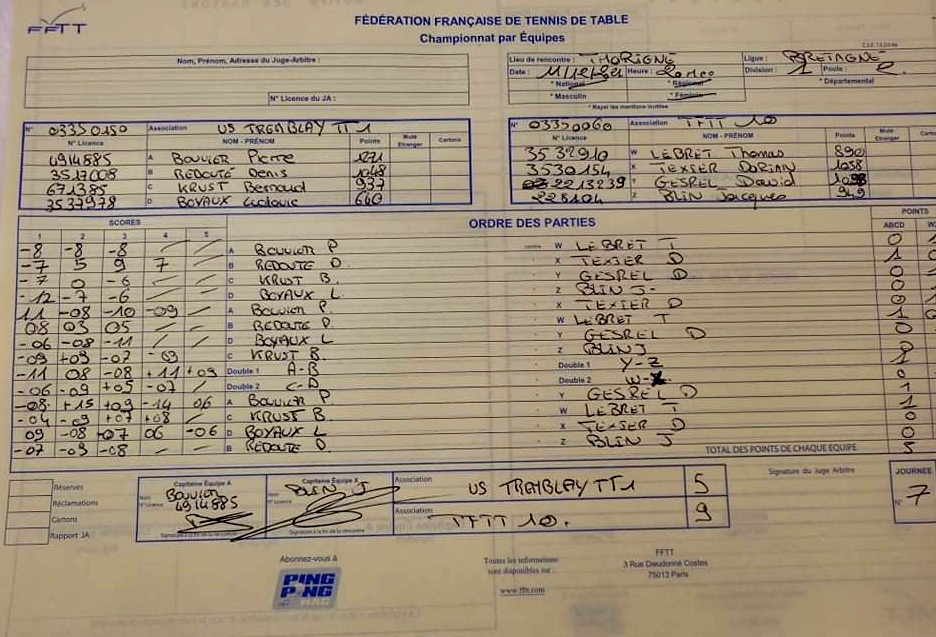 FFTT
FÉDÉRATION FRANÇAISE DE TENNIS DE TABLE
Championnat par Équipes
Nom, Prénom, Adresse du Juge-Arbitre :
N° Licence du JA :
Lieu de rencontre : THORIGNE Ligue : BRETAGNE
Date : Heure : Division : 1 Poule : 2
* National * Régional * Départemental
* Masculin * Féminin
* Rayer les mentions inutiles
N° 03350150 Association US TREMBLAY TT1
N° Licence NOM - PRÉNOM Points Muté Etranger Cartons
4914885 A BOUVIER Pierre 1271
3517008 B REDOUTE Denis 1048
671385 C KRUST Bernard 937
3537978 D BOYAUX Ludovic 660
N° 03350060 Association TFTT 10
N° Licence NOM - PRÉNOM Points Muté Etranger Cartons
3532910 W LEBRET Thomas 890
3530154 X TEXIER DORIAN 1058
2213239 Y GESREL David 1098
228104 Z BLIN Jacques 949
SCORES ORDRE DES PARTIES POINTS
1 2 3 4 5 ABCD
-8 -8 -8 / / A BOUVIER P contre W LEBRET T 0
-7 5 9 7 / B REDOUTE D. X TEXIER D 1
-7 0 -6 / / C KRUST B. Y GESREL D. 0
-12 -7 -6 / / D BOYAUX L. Z BLIN J- 0
11 -08 -10 -09 / A BOUVIER P. X TEXIER D 0
08 03 05 / / B REDOUTE D. W LEBRET T 1
-06 -08 -11 / / D BOYAUX L Y GESREL D 0
-09 +09 -07 -09 / C KRUST B. Z BLIN J 0
-11 08 -08 +11 +09 Double 1 A-B Double 1 Y-Z 1
-06 -09 +05 -07 / Double 2 C-D Double 2 W-X 0
-08 +15 +09 -14 06 A BOUVIER P Y GESREL D 1
-04 -09 +07 +08 / C KRUST B W LEBRET T 1
09 -08 +07 06 -06 D BOYAUX L X TEXIER D 0
-07 -09 -08 / / B REDOUTE D. Z BLIN J 0
TOTAL DES POINTS DE CHAQUE ÉQUIPE 5
Réserves
Réclamations
Cartons
Rapport JA
Capitaine Équipe A
Nom Bouvier
N° Licence 4914885
Signature à la fin de la rencontre
Capitaine Équipe X
Nom BLIN J
N° Licence
Signature à la fin de la rencontre
Association US TREMBLAY TT1 5
Association TFTT 10. 9
Signature du Juge Arbitre
JOURNÉE
N° 7
Abonnez-vous à
PING PONG MAG
Toutes les informations
sont disponibles sur :
www.fftt.com
FFTT
3 Rue Dieudonné Costes
75013 Paris